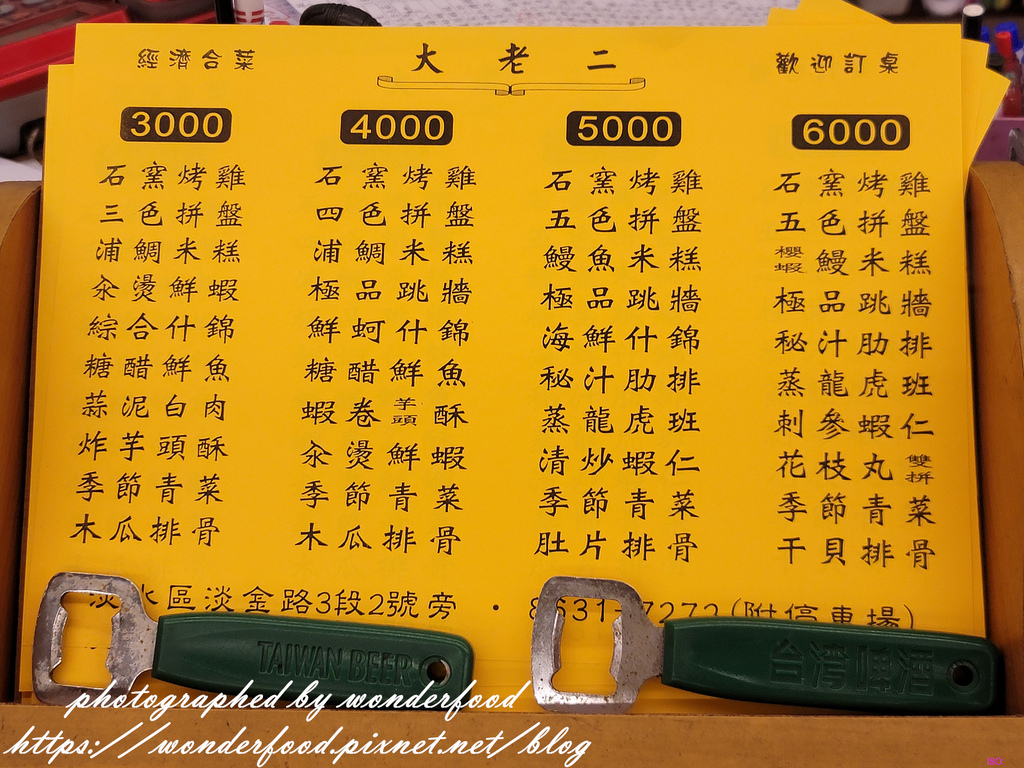 經濟合菜 大老二 歡迎訂桌
3000
石窯烤雞
三色拼盤
浦鯛米糕
汆燙鮮蝦
綜合什錦
糖醋鮮魚
蒜泥白肉
炸芋頭酥
季節青菜
木瓜排骨
4000
石窯烤雞
四色拼盤
浦鯛米糕
極品跳牆
鮮蚵什錦
糖醋鮮魚
蝦卷芋頭酥
汆燙鮮蝦
季節青菜
木瓜排骨
5000
石窯烤雞
五色拼盤
鰻魚米糕
極品跳牆
海鮮什錦
秘汁肋排
蒸龍虎班
清炒蝦仁
季節青菜
肚片排骨
6000
石窯烤雞
五色拼盤
櫻蝦鰻米糕
極品跳牆
秘汁肋排
蒸龍虎班
刺參蝦仁
花枝丸雙拼
季節青菜
干貝排骨
淡水區淡金路3段2號旁 · 8631-7272(附停車場)
TAIWAN BEER
台灣啤酒
photographed by wonderfood
https://wonderfood.pixnet.net/blog